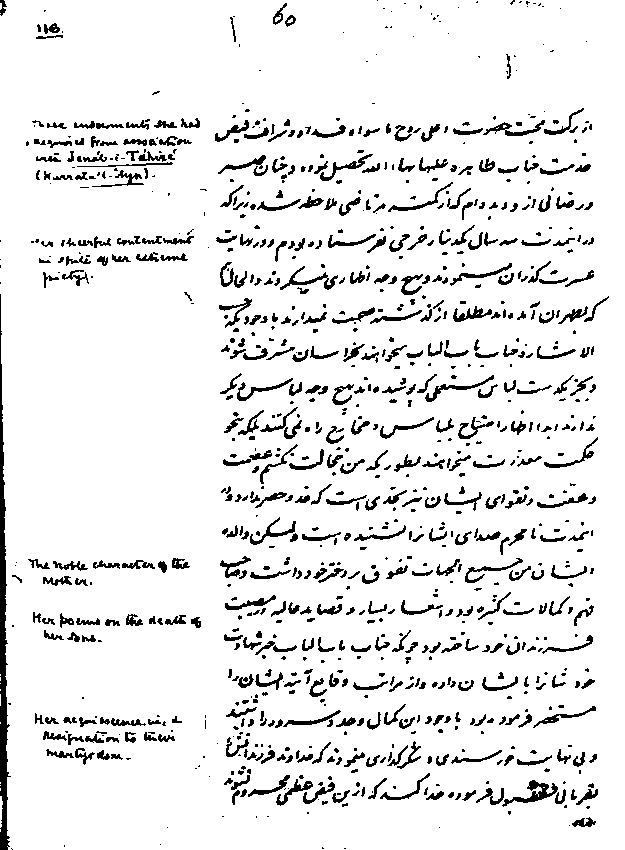 60
116.
These endowments she had
acquired from association
with Jenáb-i-Táhiré
(Kurratu'l-'Ayn).
Her cheerful contentment
in spite of her extreme
piety.
The noble character of the
mother.
Her poems on the death of
her sons.
Her acquiescence and
resignation to their
martyrdom.
از برکت محبت حضرت اعلی روح ما سواه فداه و شرافت فیض
خدمت جناب طاهره علیها بهاء الله تحصیل نموده و چنان صبر
و رضائی از او دیده‌ام که از کمتر مرتاضی ملاحظه شده زیرا که
در اینمدت سه سال یکدینار خرجی نفرستاده بودم و در نهایت
عسرت گذران مینمودند و بهیچ وجه اظهاری نمیکردند و الحال
که بطهران آمده‌اند مطلقا از گذشته صحبت نمیدارند با وجودیکه
الاشاره جناب باب الباب میخواهند بخراسان مشرف شوند
و بجز یکدست لباس مستعملی که پوشیده‌اند بهیچ وجه لباس دیگر
ندارند ابدا اظهار احتیاج بلباس و مخارج راه نمی کنند بلکه بنحو
حکمت معذرت میخواهند بطوریکه من خجالت نکشم و عصمت
و عفت و تقوای ایشان نیز بحدی است که حد و حصر ندارد و در
اینمدت نامحرم صدای ایشانرا نشنیده است ولیکن والده
ایشان من جمیع الجهات تفوق بر دختر خود داشت و صاحب
فهم و کمالات کثیره بود و اشعار بسیار و قصاید عالیه در مصیبت
فرزندان خود ساخته بود چونکه جناب باب الباب خبر شهادت
خود شانرا بایشان داده و از مراتب وقایع آتیه ایشان را
مستحضر فرموده بود با وجود این کمال وجد و سرور را داشتند
و بی نهایت خورسندی و شکرگذاری مینمودند که خداوند فرزندانش را
بقربانی قبول فرموده خدا کند که از این فیض عظمی محروم نشوند